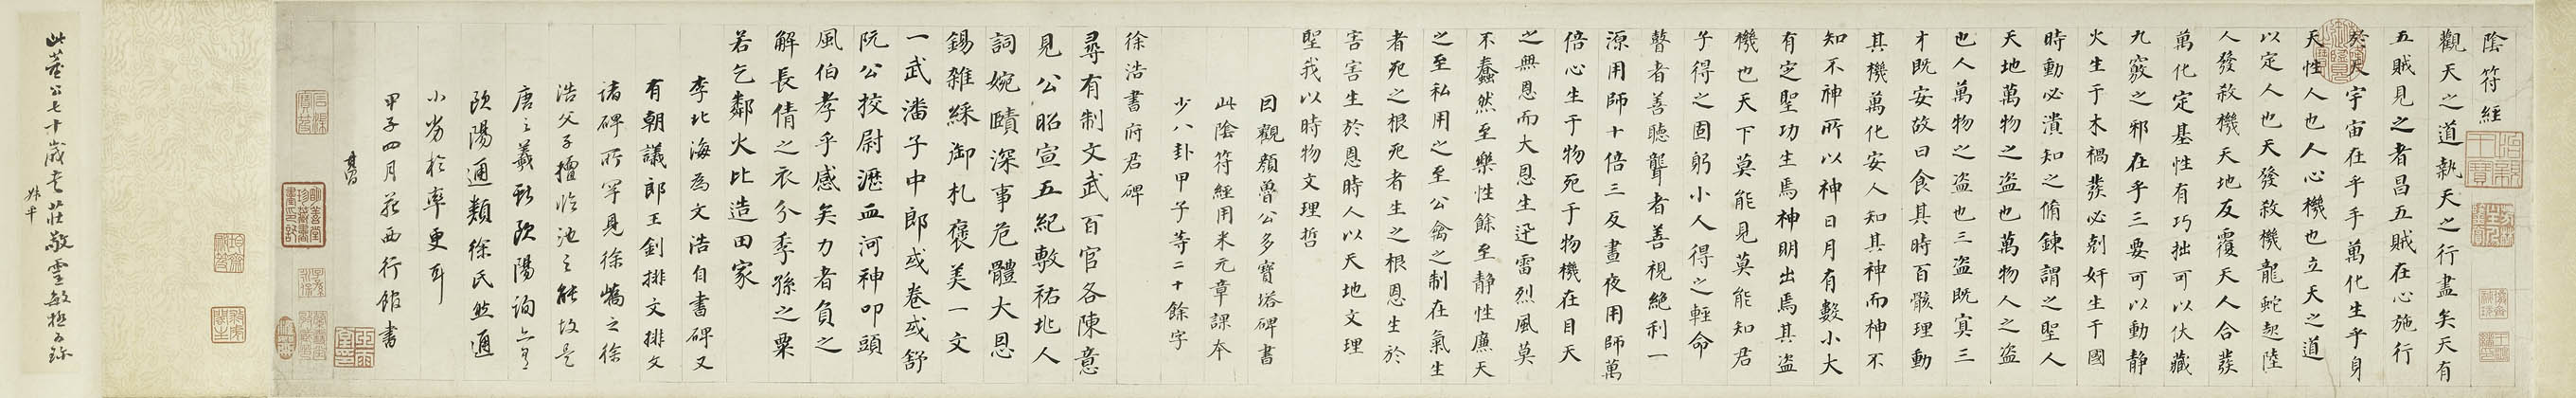 陰符經
觀天之道執天之行盡矣天有
五賊見之者昌五賊在心施行
於天宇宙在乎手萬化生乎身
天性人也人心機也立天之道
以定人也天發殺機龍蛇起陸
人發殺機天地反覆天人合發
萬化定基性有巧拙可以伏藏
九竅之邪在乎三要可以動靜
火生于木禍發必剋奸生于國
時動必潰知之脩鍊謂之聖人
天地萬物之盜也萬物人之盜
也人萬物之盜也三盜既冥三
才既安故曰食其時百骸理動
其機萬化安人知其神而神不
知不神所以神日月有數小大
有定聖功生焉神明出焉其盜
機也天下莫能見莫能知君
子得之固躬小人得之輕命
瞽者善聽聾者善視絕利一
源用師十倍三反晝夜用師萬
倍心生于物死于物機在目天
之無恩而大恩生迅雷烈風莫
不蠢然至樂性餘至靜性廉天
之至私用之至公禽之制在氣生
者死之根死者生之根恩生於
害害生於恩時人以天地文理
聖我以時物文理哲
因觀顏魯公多寶塔碑書
此陰符經用米元章課本
少八卦甲子等二十餘字
徐浩書府君碑
尋有制文武百官各陳意
見公昭宣五紀敷祐兆人
詞婉賾深事危體大恩
錫雜綵御札褒美一文
一武潘子中郎或卷或舒
阮公挍尉瀝血河神叩頭
風伯孝乎感矣力者負之
解長倩之衣分季孫之粟
若乞鄰火比造田家
李北海為文浩自書碑又
有朝議郎王釗排文排文
諸碑所罕見徐嶠之徐
浩父子擅臨池之能故是
唐之羲獻歐陽詢亦有
歐陽通類徐氏然通
小劣於率更耳
甲子四月花西行館書
其昌
此董公七十歲書莊敬靈敏極可珍